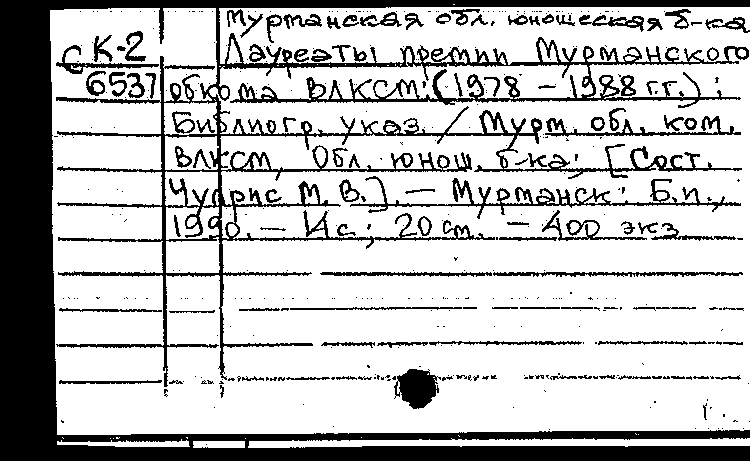 Мурманская обл. юношеская б-ка
С К-2
6537
Лауреаты премии Мурманского
обкома ВЛКСМ: (1978 - 1988 гг.) :
Библиогр. указ. / Мурм. обл. ком.
ВЛКСМ, Обл. юнош. б-ка; [Сост.
Чуприс М. В.]. - Мурманск: Б.и.,
1990. - 14 с; 20 см. - 400 экз